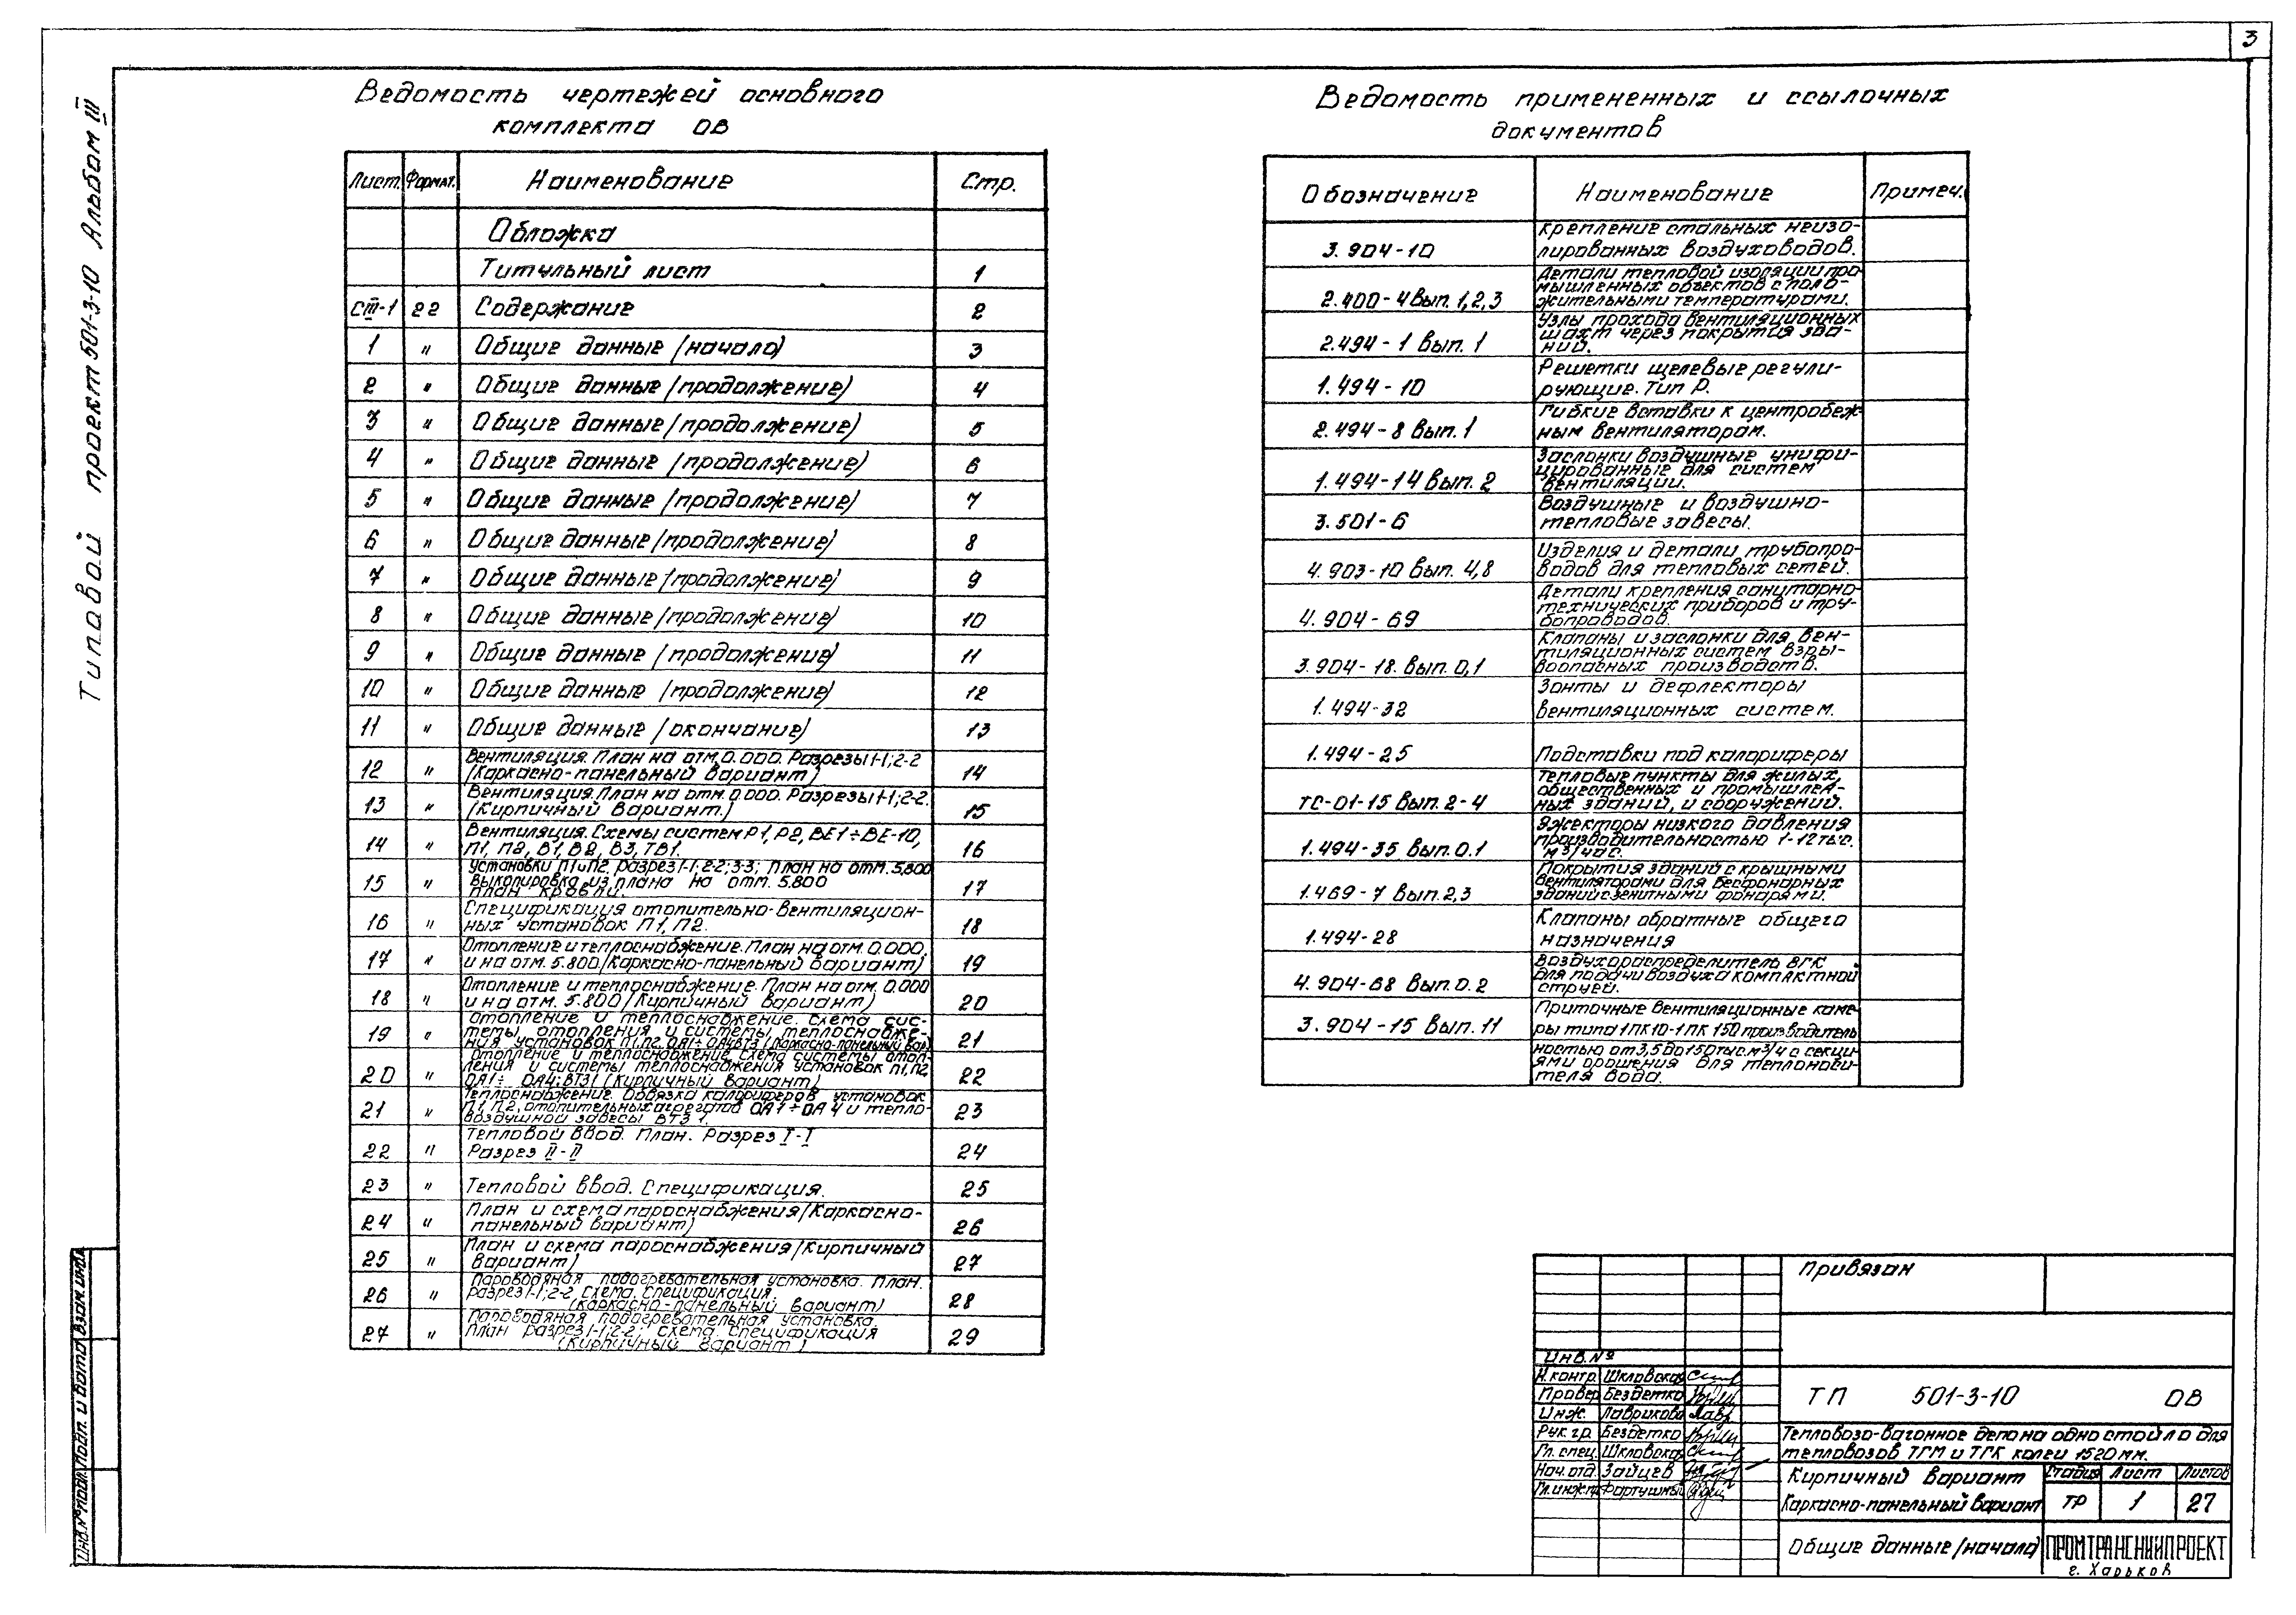 3
Типовой проект 501-3-10 Альбом III
Ведомость чертежей основного
комплекта ОВ
Лист. Формат. Наименование Стр.
Обложка
Титульный лист 1
СIII-1 22 Содержание 2
1 " Общие данные (начало) 3
2 " Общие данные (продолжение) 4
3 " Общие данные (продолжение) 5
4 " Общие данные (продолжение) 6
5 " Общие данные (продолжение) 7
6 " Общие данные (продолжение) 8
7 " Общие данные (продолжение) 9
8 " Общие данные (продолжение) 10
9 " Общие данные (продолжение) 11
10 " Общие данные (продолжение) 12
11 " Общие данные (окончание) 13
12 " Вентиляция. План на отм. 0.000. Разрезы 1-1; 2-2
(Каркасно-панельный вариант) 14
13 " Вентиляция. План на отм. 0.000. Разрезы 1-1; 2-2.
(Кирпичный вариант.) 15
14 " Вентиляция. Схемы систем Р1, Р2, ВЕ1÷ВЕ-10,
П1, П2, В1, В2, В3, ТВ1. 16
15 " Установки П1 и П2. разрез 1-1; 2-2; 3-3; План на отм. 5.800
Выкопировка из плана на отм. 5.800
план кровли. 17
16 " Спецификация отопительно-вентиляцион-
ных установок П1, П2. 18
17 " Отопление и теплоснабжение. План на отм. 0.000,
и на отм. 5.800 (Каркасно-панельный вариант) 19
18 " Отопление и теплоснабжение. План на отм. 0.000
и на отм. 5.800 (Кирпичный вариант) 20
19 " Отопление и теплоснабжение. Схема сис-
темы отопления и системы теплоснабже-
ния установок П1, П2. ОА1÷ОА4; ВТЗ1 (Каркасно-панельный вар.) 21
20 " Отопление и теплоснабжение. Схема системы отоп-
ления и системы теплоснабжения установок П1, П2
ОА1÷ ОА4; ВТЗ1 (Кирпичный вариант) 22
21 " Теплоснабжение. Обвязка калориферов установок
П1, П2, отопительных агрегатов ОА1÷ОА4 и тепло-
воздушной завесы ВТЗ 1. 23
22 " Тепловой ввод. План. Разрез I-I
Разрез II-II 24
23 " Тепловой ввод. Спецификация. 25
24 " План и схема пароснабжения (Каркасно-
панельный вариант) 26
25 " План и схема пароснабжения (Кирпичный
вариант) 27
26 " Пароводяная подогревательная установка. План.
разрез 1-1; 2-2. Схема. Спецификация.
(каркасно-панельный вариант) 28
27 " Пароводяная подогревательная установка.
План разрез 1-1; 2-2; схема. Спецификация
(кирпичный вариант) 29
Ведомость примененных и ссылочных
документов
Обозначение Наименование Примеч.
3.904-10 Крепление стальных неизо-
лированных воздуховодов.
2.400-4 Вып. 1, 2, 3 Детали тепловой изоляции про
мышленных объектов с поло-
жительными температурами.
2.494-1 Вып. 1 Узлы прохода вентиляционных
шахт через покрытия зда-
ний.
1.494-10 Решетки щелевые регули-
рующие. Тип Р.
2.494-8 Вып. 1 Гибкие вставки к центробеж
ным вентиляторам.
1.494-14 Вып. 2 Заслонки воздушные унифи-
цированные для систем
вентиляции.
3.501-6 Воздушные и воздушно-
тепловые завесы.
4.903-10 Вып. 4,8 Изделия и детали трубопро-
водов для тепловых сетей.
4.904-69 Детали крепления санитарно-
технических приборов и тру-
бопроводов.
3.904-18. Вып. 0,1 Клапаны и заслонки для вен-
тиляционных систем взры-
воопасных производств.
1.494-32 Зонты и дефлекторы
вентиляционных систем.
1.494-25 Подставки под калориферы
ТС-01-15 Вып. 2-4 Тепловые пункты для жилых,
общественных и промышлен-
ных зданий, и сооружений.
1.494-35 Вып. 0.1 Эжекторы низкого давления
производительностью 1-12 тыс.
м³/час.
1.469-7 Вып. 2,3 Покрытия зданий с крышными
вентиляторами для бесфонарных
зданий с зенитными фонарями.
1.494-28 Клапаны обратные общего
назначения
4.904-68 Вып. 0.2 Воздухораспределитель ВГК
для подачи воздуха компактной
струей.
3.904-15 Вып. 11 Приточные вентиляционные каме
ры типа 1ПК10-1ПК 150 производитель
ностью от 3,5 до 150 тыс. м³/ч с секци
ями орошения для теплоноси-
теля вода.
Привязан
Инв. №
Н.контр. Шкловская
Провер Бездетко
Инж. Лаврикова
Рук. гр. Бездетко
Гл. спец. Шкловская
Нач. отд. Зайцев
Гл.инж.пр Фартушный
ТП 501-3-10 ОВ
Тепловозо-вагонное депо на одно стойло для
тепловозов ТГМ и ТГК колеи 1520 мм.
Кирпичный вариант Стадия Лист Листов
Каркасно-панельный вариант ТР 1 27
Общие данные (начало) ПРОМТРАНСНИИПРОЕКТ
г. Харьков
Инв. № подл. Подп. и дата Взам. инв.